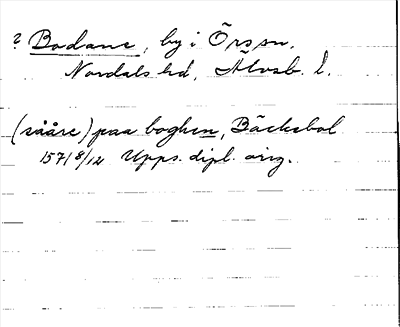 ? Bodane, by i Örs sn.
Nordals hd, Älvsb. l.
(sååre) paa boghen, Bäcksbol
1571 8/12 Upps. dipl. orig.